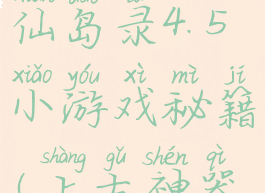 仙岛录4.5
xiǎo yóu xì mì jí
小游戏秘籍
shàng gǔ shén qì
(上古神器